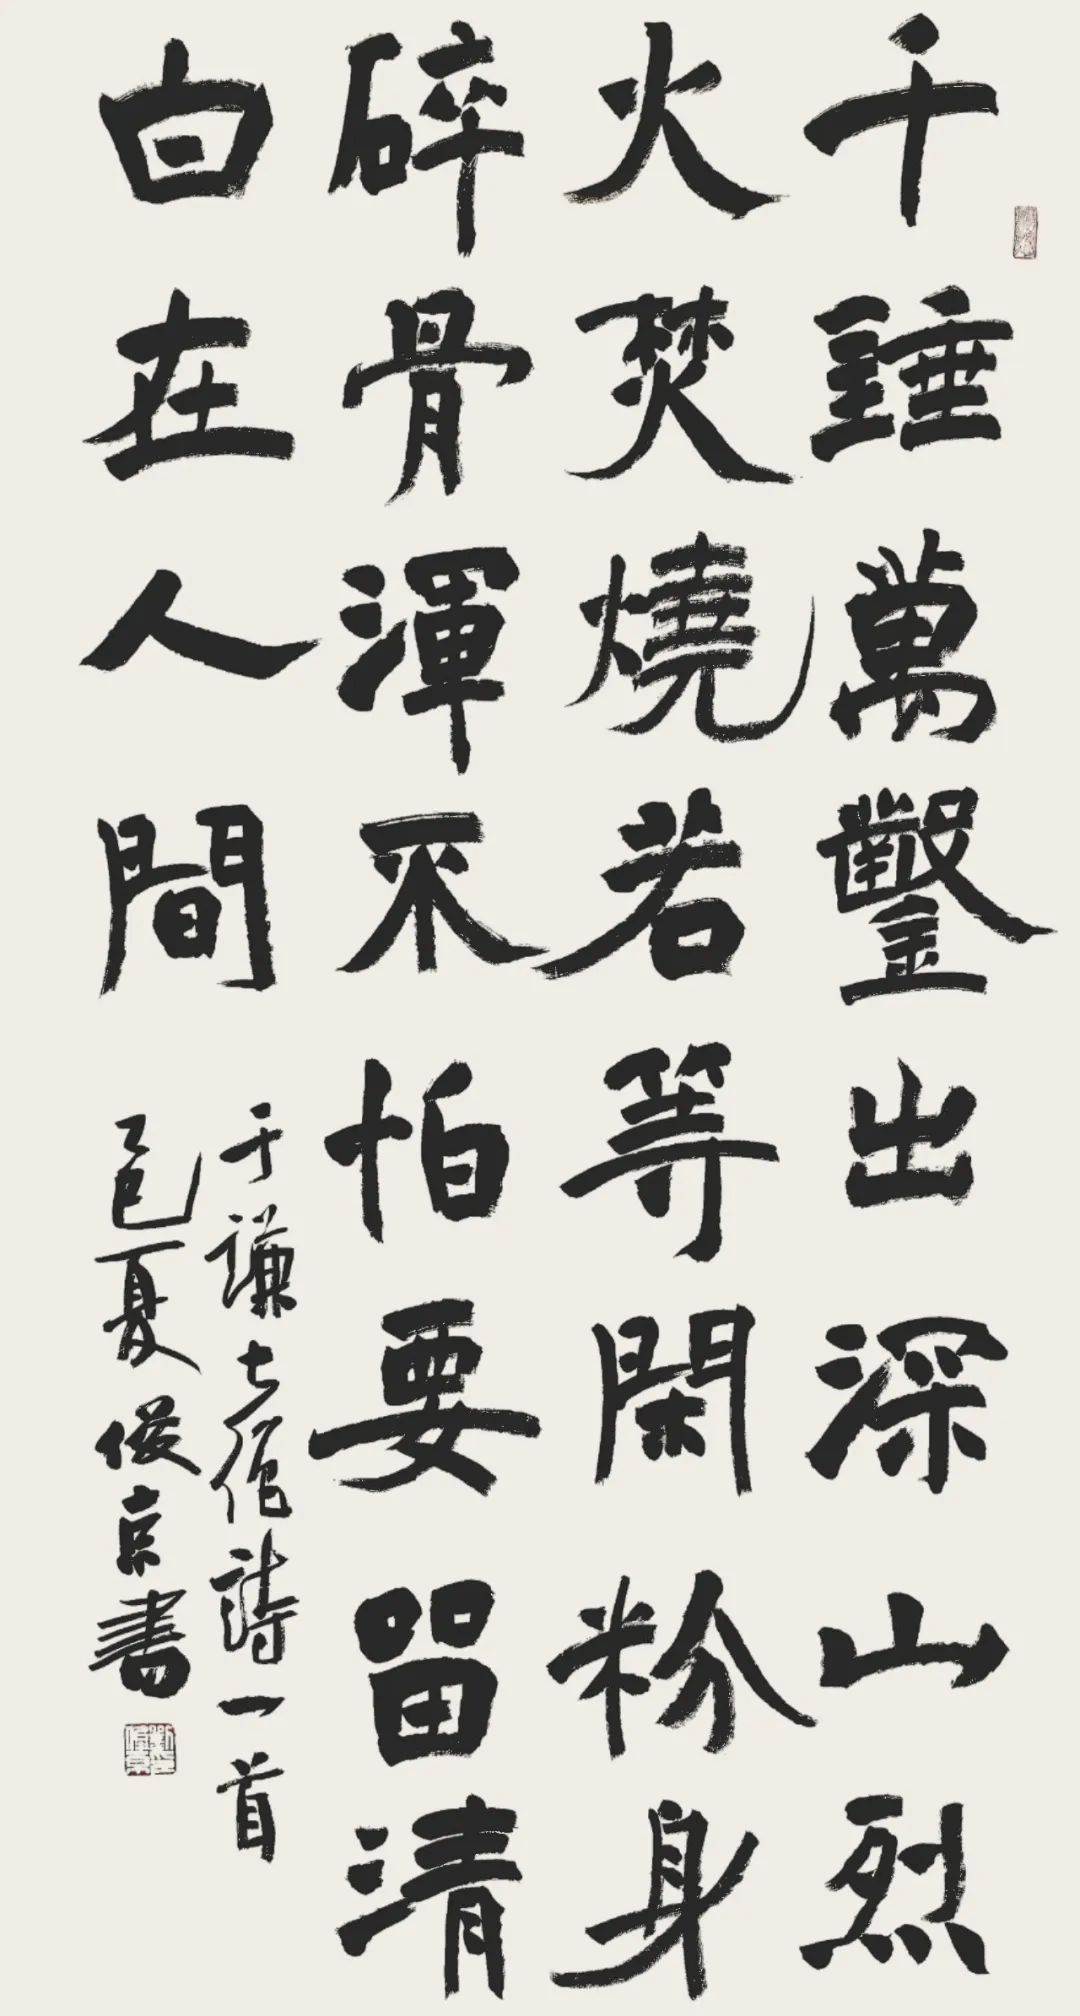 千錘萬鑿出深山烈
火焚燒若等閑粉身
碎骨渾不怕要留清
白在人間
于謙七絕詩一首
乙巳夏俊京書